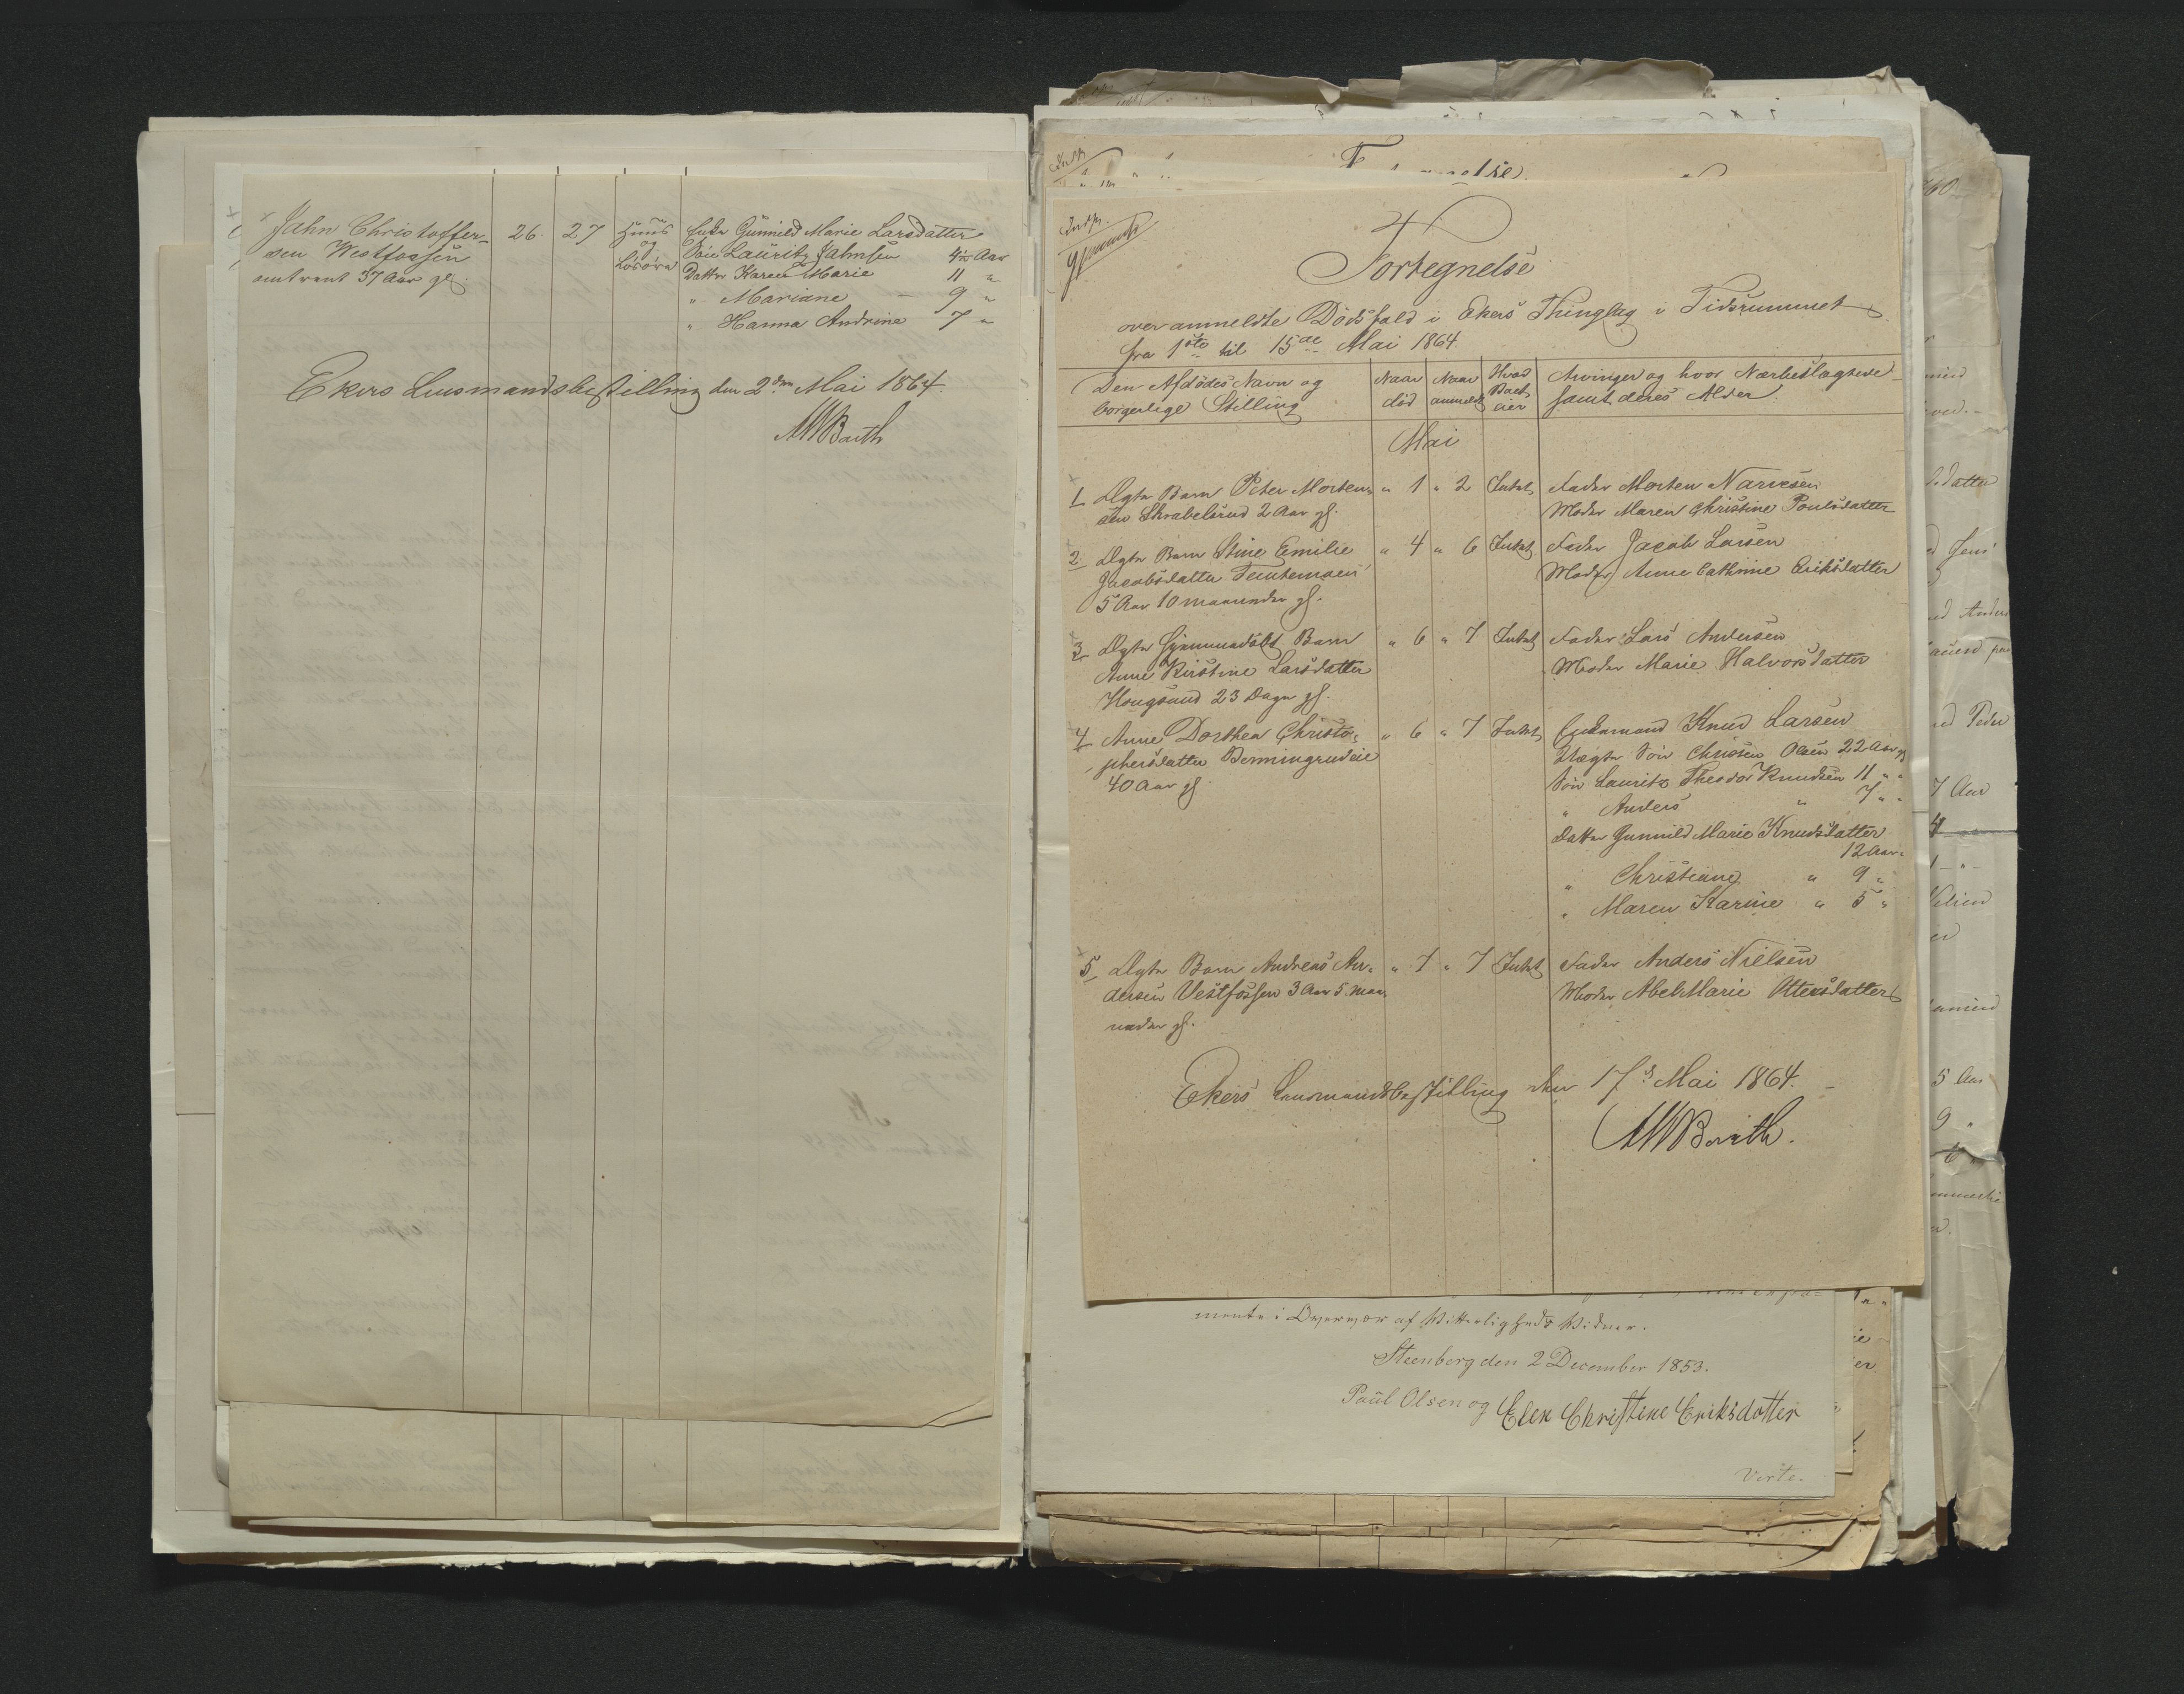 Jahn Christoffer-
sen Westfossen
omtrent 37 Aar gl.
26. 27
Huus
og
Løsøre
Enke Gunnild Marie Larsdatter
Søn Lauritz Jahnsen 4½ Aar
Datter Karen Marie 11 "
" Mariane — 9 "
" Hanna Andrine 7 "
Ekers Lensmandsbestilling den 2den Mai 1864.
MWBarth
Fortegnelse
over anmeldte Dødsfald i Ekers Thinglag i Tidsrummet
fra 1ste til 15de Mai 1864.
Den Afdødes Navn og
borgerlige Stilling
Naar
død
Naar
anmeldt
Hvad
Boet
eier
Arvinger og hvor Nærbeslægtede
samt deres Alder.
Mai
1. Ægte Barn Peter Morten- " 1 " 2 Intet Fader Morten Narvesen
sen Skrabelsrud 2 Aar gl. Moder Maren Christine Poulsdatter
2. Ægte Barn Stine Emilie " 4 " 6 Intet Fader Jacob Larsen
Jacobsdatter Moder Anne Cathrine Eriksdatter
5 Aar 10 maaneder gl.
3. Ægte Barn " 6 " 7 Intet Fader Lars Andersen
Anne Kirstine Larsdatter Moder Marie Halvorsdatter
Hougsund 23 Dage gl.
4. Anne Dorthea Christo- " 6 " 7 Intet Enkemand Knud Larsen
phersdatter Uægte Søn Olsen 22 Aar gl
40 Aar gl. Søn Lauritz Theodor Knudsen 11 " "
" Anders " 7 " "
Datter Gunnild Marie Knudsdatter
12 Aar "
" Christiane " 9 "
" Maren Karine " 5 "
5. Ægte Barn Andreas An- " 7 " 7 Intet Fader Anders Nielsen
dersen Vestfossen 3 Aar 5 maa- Moder Abel Marie Ottersdatter
neder gl.
Ekers Lensmandsbestilling den 17de Mai 1864.
MWBarth.
mente i Overvær af Vitterligheds Vidner.
Steenberg den 2 December 1853.
Paul Olsen og Elen Christine Eriksdatter
Verte.
datter
7 Aar
5 Aar
9 "